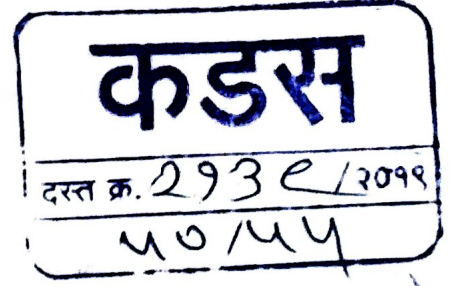 कडस
दस्त क्र. २१३९/२०१९
५०/५५